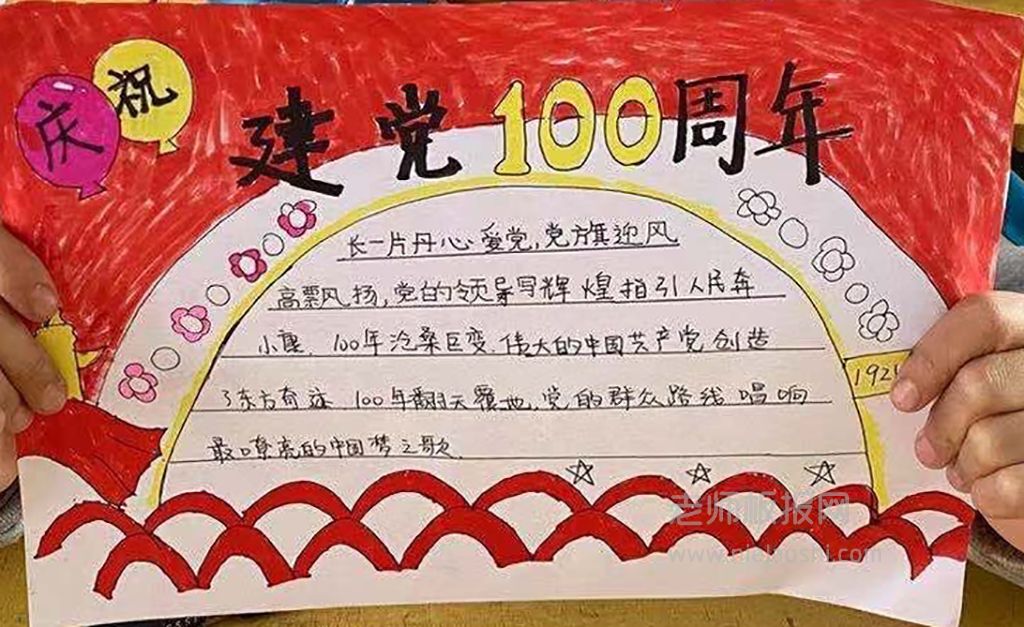 庆祝
建党100周年
长一片丹心爱党,党旗迎风
高票风扬,党的领导写辉煌指引人民奔
小康.100年沧桑巨变.伟大的中国共产党创造
了东方奇迹.100年翻天覆地.党的群众路线唱响
最嘹亮的中国梦之歌.
192
老师板报网